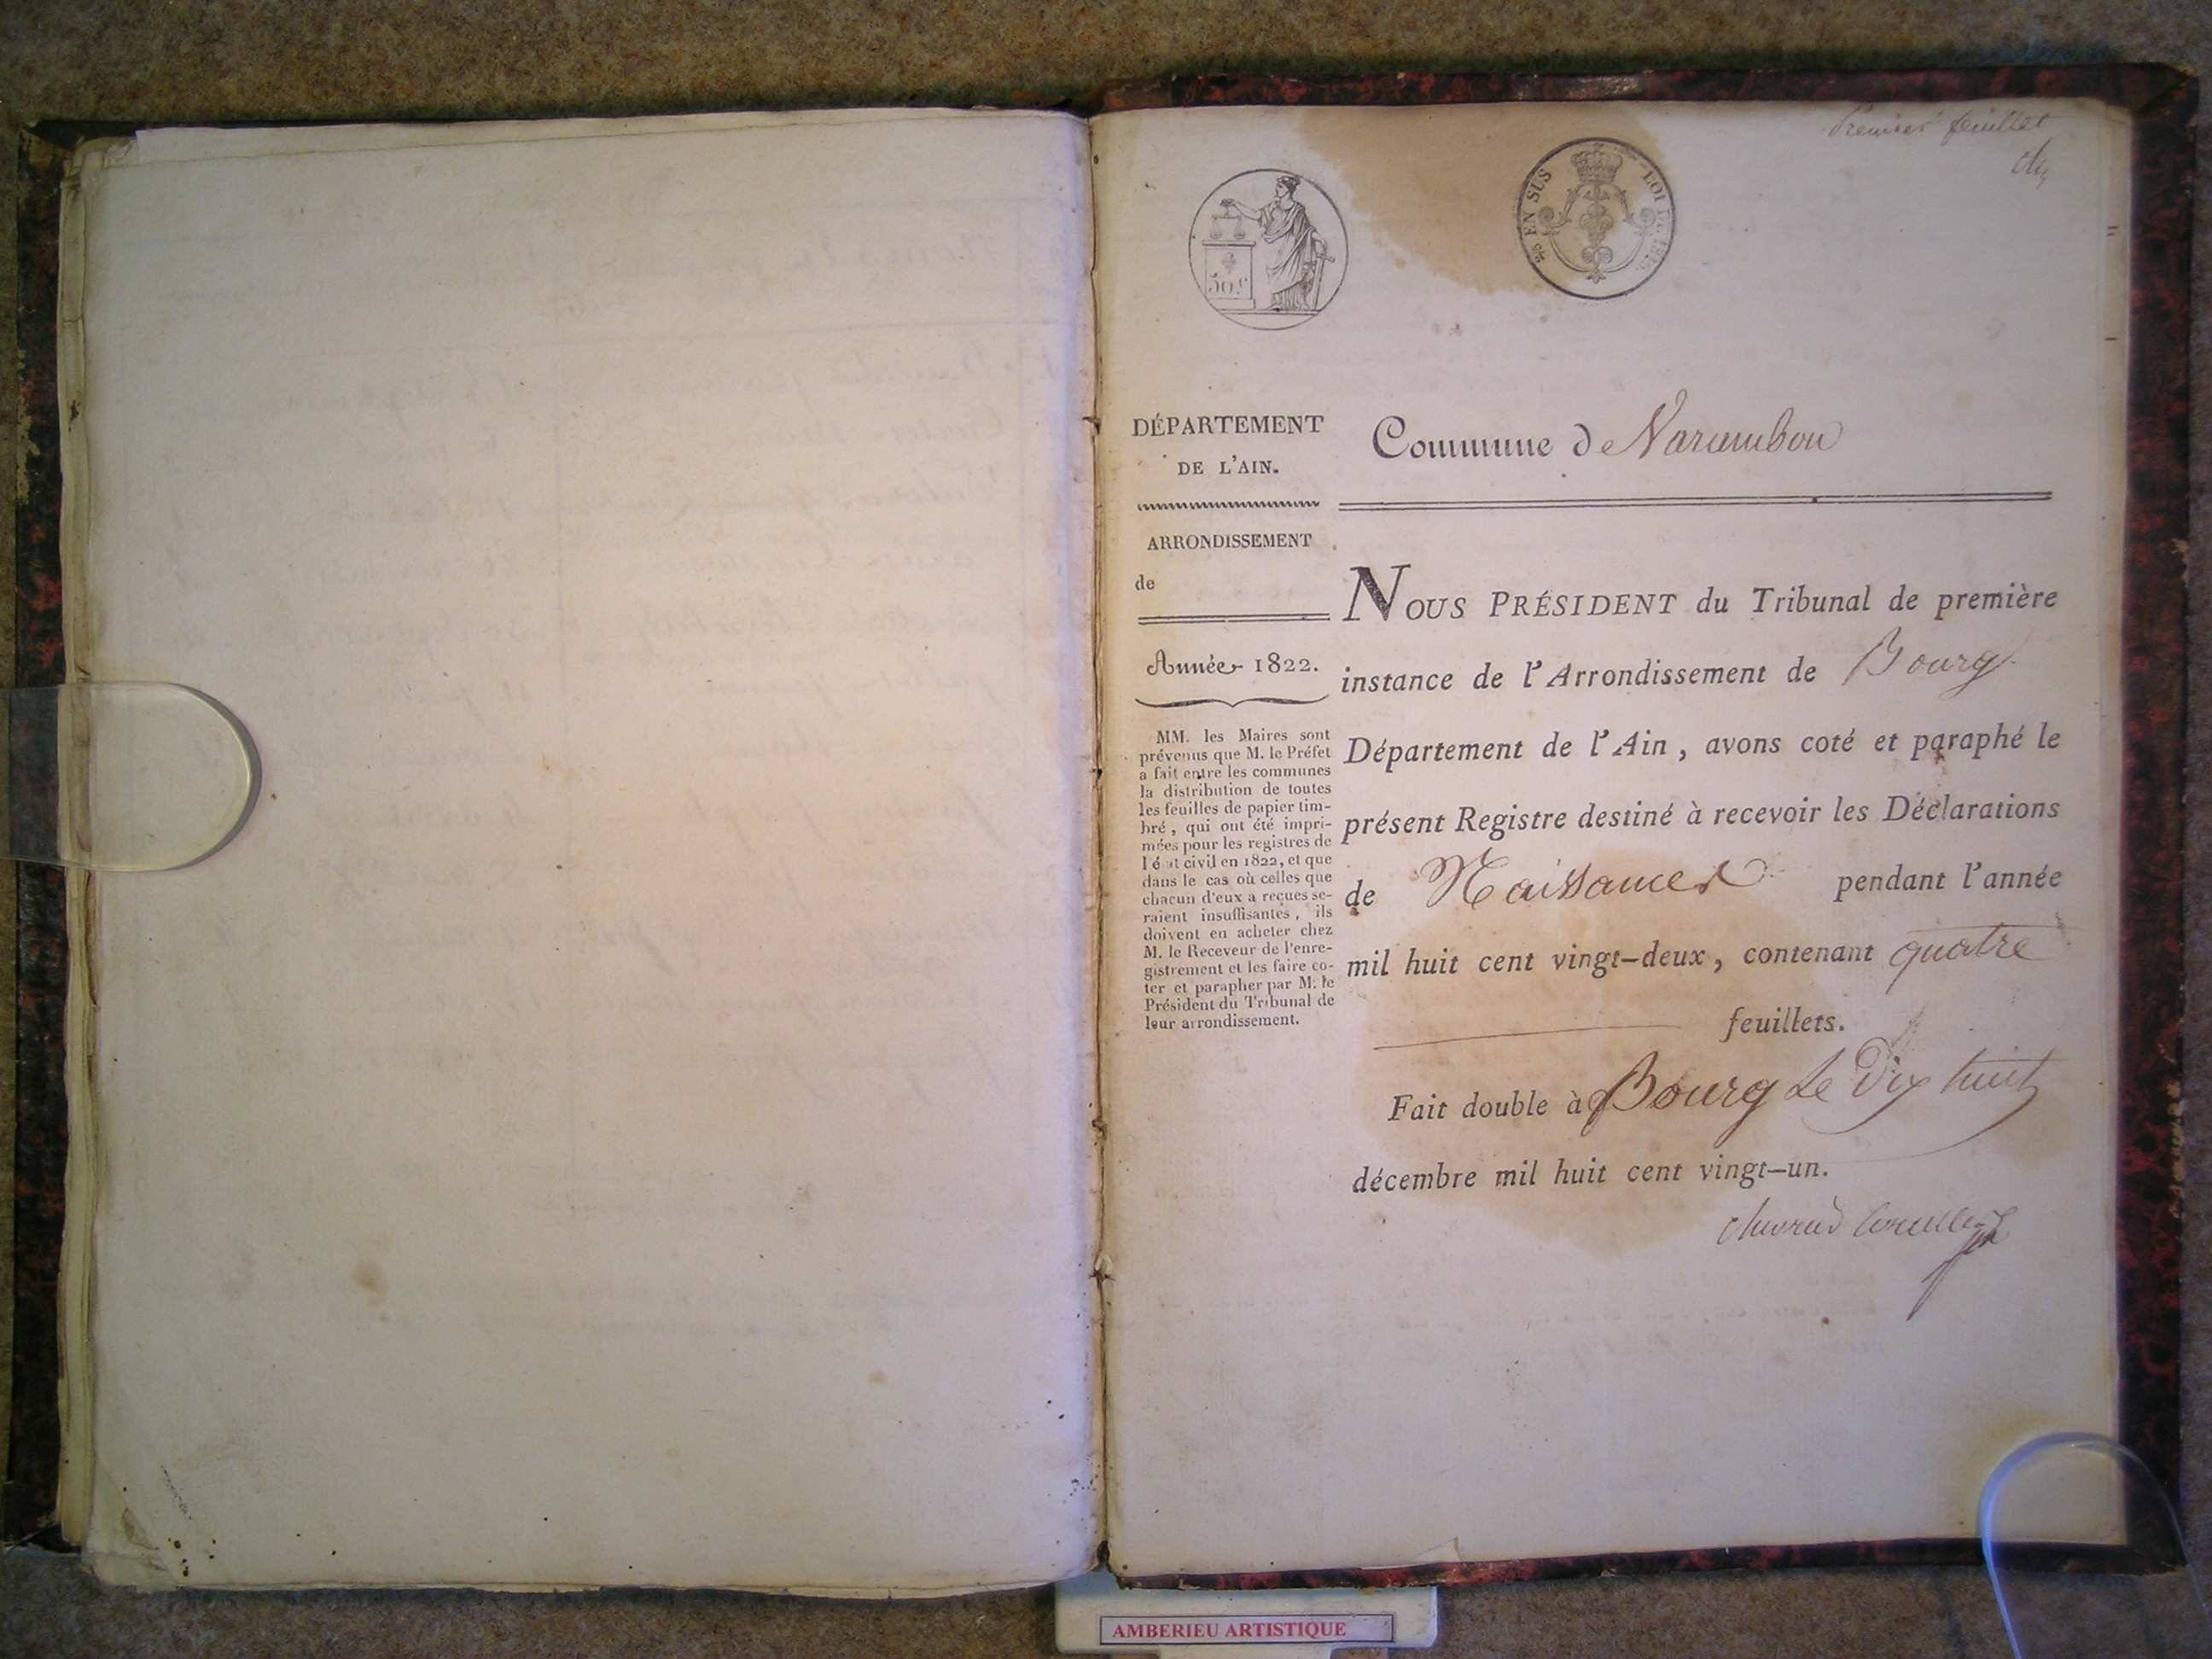 Premier feuillet
50 c
EN SUS
LOI DE 1816
DÉPARTEMENT
DE L'AIN.
Commune de Varambon
ARRONDISSEMENT
de
Année 1822.
MM. les Maires sont
prévenus que M. le Préfet
a fait entre les communes
la distribution de toutes
les feuilles de papier tim-
bré, qui ont été impri-
mées pour les registres de
l'état civil en 1822, et que
dans le cas où celles que
chacun d'eux a reçues se-
raient insuffisantes, ils
doivent en acheter chez
M. le Receveur de l'enre-
gistrement et les faire co-
ter et parapher par M. le
Président du Tribunal de
leur arrondissement.
NOUS PRÉSIDENT du Tribunal de première
instance de l'Arrondissement de Bourg
Département de l'Ain, avons coté et paraphé le
présent Registre destiné à recevoir les Déclarations
de Naissances pendant l'année
mil huit cent vingt-deux, contenant quatre
feuillets.
Fait double à Bourg Le Dix huit
décembre mil huit cent vingt-un.
AMBERIEU ARTISTIQUE